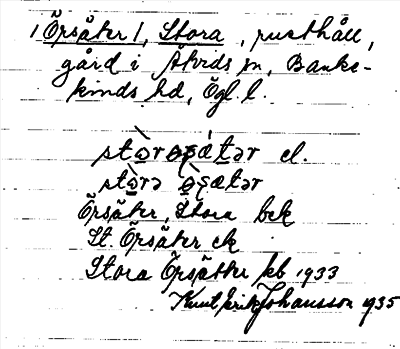 1 Örsäter 1, Stora, rusthåll,
gård i Åtvids sn, Banke-
kinds hd, Ögl. l.
el.
Örsäter, Stora bek
St. Örsäter ek
Stora Örsätter kb 1933
Knut Erik Johansson 1935